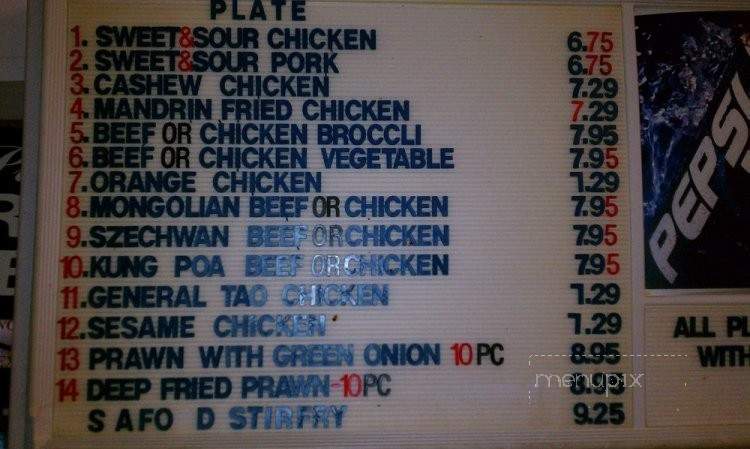 PLATE
1. SWEET&SOUR CHICKEN 6.75
2. SWEET&SOUR PORK 6.75
3. CASHEW CHICKEN 7.29
4. MANDRIN FRIED CHICKEN 7.29
5. BEEF OR CHICKEN BROCCLI 7.95
6. BEEF OR CHICKEN VEGETABLE 7.95
7. ORANGE CHICKEN 7.29
8. MONGOLIAN BEEF OR CHICKEN 7.95
9. SZECHWAN BEEF OR CHICKEN 7.95
10. KUNG POA BEEF OR CHICKEN 7.95
11. GENERAL TAO CHICKEN 7.29
12. SESAME CHICKEN 7.29
13 PRAWN WITH GREEN ONION 10PC 8.95
14 DEEP FRIED PRAWN-10PC 8.95
S AFO D STIRFRY 9.25
PEPSI
ALL
WITH
menupix